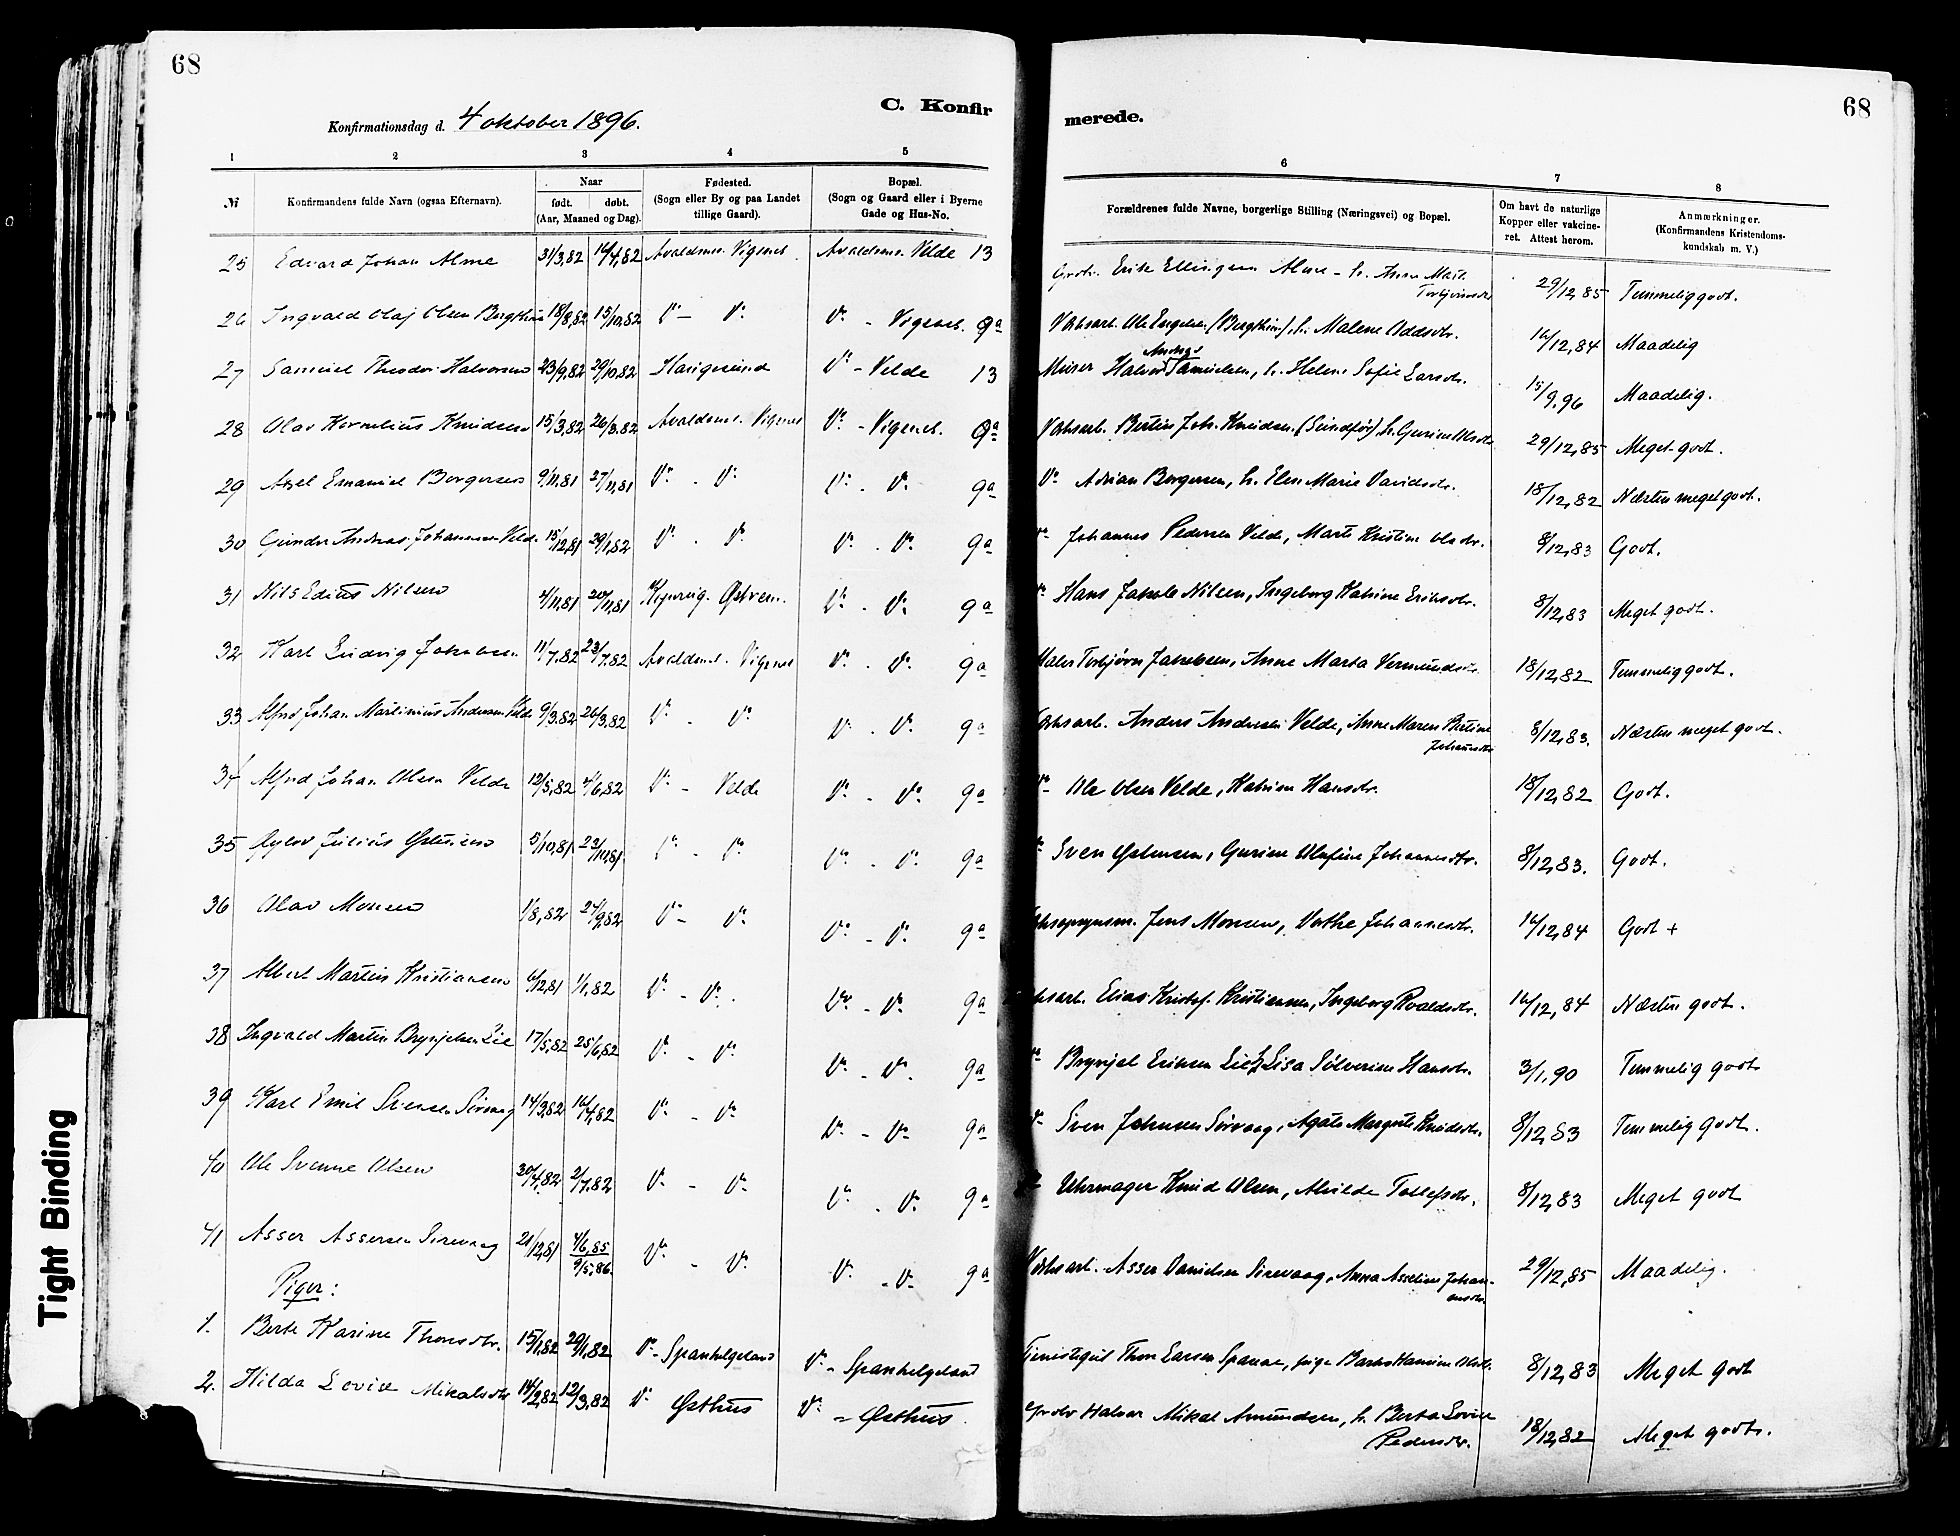 68
C. Konfir
merede.
68
Konfirmationsdag d. 4 oktober 1896.
1 2 3 4 5 6 7 8
№ Konfirmandens fulde Navn (ogsaa Efternavn). Naar født. døbt. (Aar, Maaned og Dag). Fødested. (Sogn eller By og paa Landet tillige Gaard). Bopæl. (Sogn og Gaard eller i Byerne Gade og Hus-No. Forældrenes fulde Navne, borgerlige Stilling (Næringsvei) og Bopæl. Om havt de naturlige Kopper eller vakcineret. Attest herom. Anmærkninger. (Konfirmandens Kristendomskundskab m. V.)
25 Edvard Johan Alme 31/3,82 16/4,82 Avaldsnes. Vigsnes Avaldsnes. Velde 13 Erik Ellingsen Alme - h. Anne Mart. Torbjørnsdtr 29/12,85 Temmelig godt.
26 Ingvald Olaj Olsen Bergthun 18/8,82 15/10,82 Do - Do Do - Vigsnes. 9a Vhksarb. Ole Engelsen (Bergthun), h. Malene Oddsdtr. 16/12,84 Maadelig
27 Samuel Theodor Halvorsen 23/9,82 29/10,82 Haugesund Do - Velde 13 Murer Halvor Andreas Samuelsen, h. Helene Sofie Larsdtr. 15/9.96 Maadelig.
28 Olav Kornelius Knudsen 15/3,82 26/3.82 Avaldsnes. Vigsnes Do - Vigsnes. 9a Vhksarb. Bertin Johs. Knudsen (Sundfør) h. Gurine Olsdtr 29/12,85 Meget godt.
29 Axel Emanuel Borgersen 9/11,81 27/11,81 Do - Do Do - Do 9a Do Adrian Borgersen, h. Elen Marie Davidsdtr. 18/12,82 Næsten meget godt.
30 Gunder Andreas Johannesen Velde 15/12,81 29/1,82 Do - Do Do - Do 9a Do Johannes Pedersen Velde, Marte Kristine Olsdtr. 8/12,83 Godt.
31 Nils Edius Nilsen 4/11,81 20/11,81 Kopervig. Østrem. Do - Do 9a Do Hans Jakob Nilsen, Ingeborg Katrine Eriksdtr. 8/12,83 Meget godt.
32 Karl Ludvig Jakobsen 11/7,82 23/7.82 Avaldsnes. Vigsnes Do - Do 9a Maler Torbjørn Jakobsen, Anne Marta Vermundsdtr 18/12,82 Temmelig godt.
33 Alfred Johan Martinius Andersen Velde 9/3,82 26/3,82 Do - Do Do - Do 9a Vhksarb. Anders Andersen Velde, Anne Maren Bertine Johannesdtr 8/12,83. Næsten meget godt.
34 Alfred Johan Olsen Velde 12/5,82 4/6,82 Do - Velde Do - Do 9a Do Ole Olsen Velde, Katrine Hansdtr. 18/12,82 Godt.
35 Julius Østensen 5/10,81 23/10,81 Do - Do Do - Do 9a Do Sven Østensen, Gurine Olufine Johannesdtr. 8/12,83. Godt.
36 Olav Monsen 1/8,82 24/9,82 Do - Do Do - Do 9a Jens Monsen, Dorthe Johannesdtr. 16/12,84 Godt +
37 Albert Martin Kristiansen 6/12,81 1/1,82 Do - Do. Do - Do 9a Vhksarb. Elias Kristof. Kristiansen, Ingeborg Roaldsdtr. 16/12,84 Næsten godt.
38 Ingvald Martin Brynjelsen Lie 17/5,82 25/6,82 Do - Do Do - Do. 9a Do Brynjel Eriksen Lie, h. Lisa Sølverine Hansdtr. 3/1,90 Temmelig godt
39 Karl Emil Svensen Sørvaag 14/3,82 16/4,82 Do - Do Do - Do 9a Do Sven Johnsen Sørvaag, Agate Margrete Knudsdtr. 8/12,83 Temmelig godt.
40 Ole Svenne Olsen 30/4,82 2/7.82 Do - Do Do - Do. 9a Uhrmager Knud Olsen, Alvilde Tollefsdtr. 8/12,83 Meget godt
41 Asser Assersen Sirevaag 21/12,81 4/6,85 9/5,86. Do - Do Do - Do 9a Vhksarb. Asser Danielsen Sirevaag, Anna Asseline Johannesdtr. 29/12,85 Maadelig.
Piger:
1. Berte Karine Thorsdtr. 15/1,82 29/1,82 Do - Spanhelgeland Do - Spanhelgeland Thor Larsen Spanne, pige Hansine Olsdtr. 8/12,83 Meget godt
2. Hilda Lovise Mikalsdtr 14/2,82 12/3,82 Do Østhus Do - Østhus. Halvor Mikal Amundsen, h. Berta Lovise Pedersdtr. 18/12,82 Meget godt.
Tight Binding